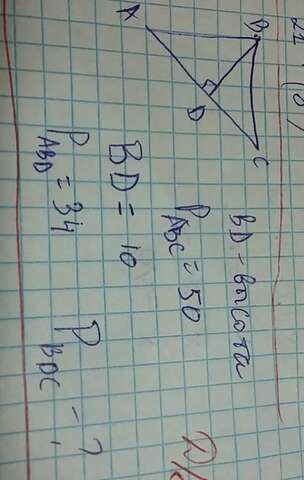 A
B
D
C
BD - высота
P ABC = 50
BD = 10
P ABD = 34
P BDC - ?